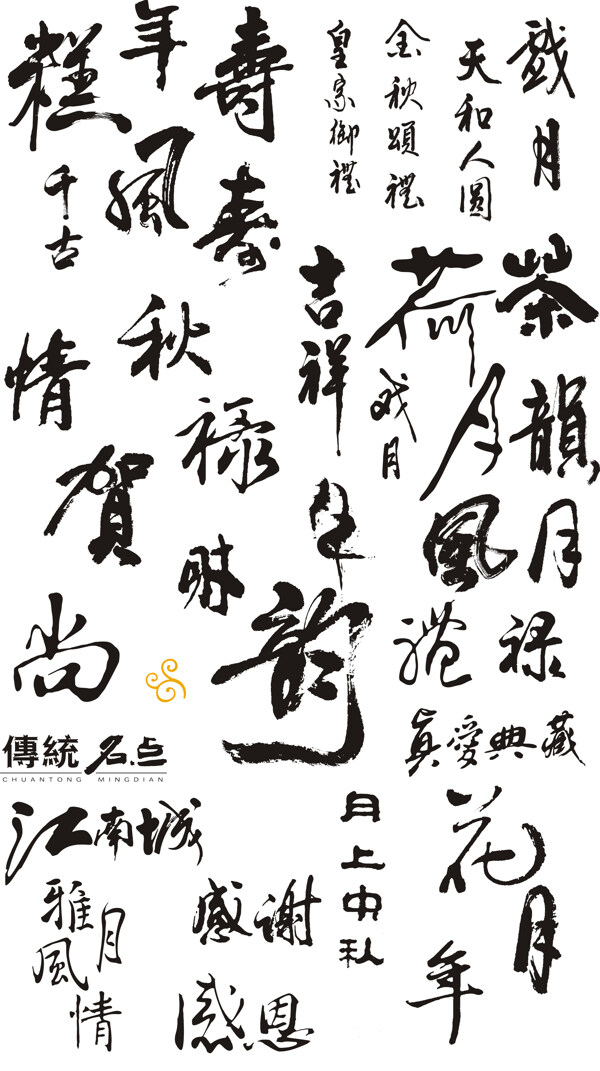 糕
年
壽
皇家御禮
金秋頌禮
天和人圓
戲月
千古
風
寿
吉祥
荷月
茶韻
情
秋
戏月
禄
賀
風
月
韵
尚
禮
禄
傳統名点
CHUANTONG MINGDIAN
真愛典藏
江南城
月上中秋
花月
雅風
月情
感谢
年
感恩